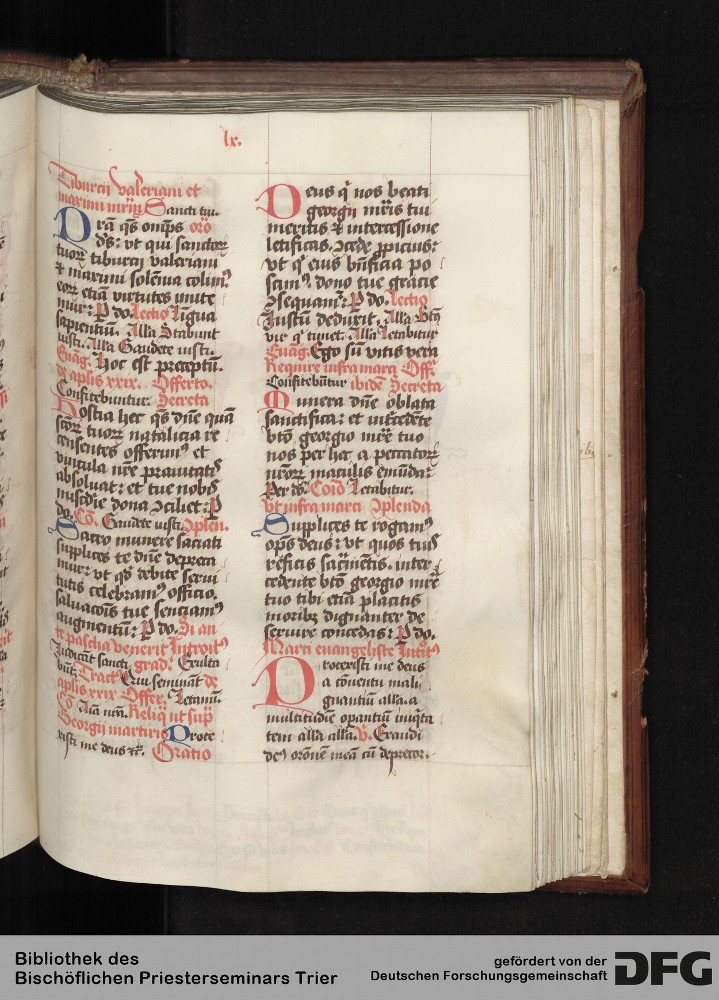 lx.
Tiburcii valeriani et
maximi mr̄m̄ Sancti tui.
Pr̄a q̄s om̄ps or̄o
d̄s: vt qui sanctoꝝ
tuoꝝ tiburcii valeriani
⁊ maximi solēnia colimꝰ
eoꝝ etiā virtutes imite
mur: P do. Lectio Līgua
sapientiū. All'a Stabunt
iusti. All'a Gaudete iusti.
Euāg. Hoc est preceptū.
de aplis xxix. Offerto.
Confitebuntur. Secreta
Hostia hec q̄s dn̄e quā
sc̄oꝝ tuoꝝ natalicia re
censentes offerimꝰ et
vincula nr̄e prauitatis
absoluat: et tue nobis
mis̄die dona ꝯciliet: P
do. Cō. Gaudete iusti. ꝯplen.
Sacro munere saciati
supplices te dn̄e depreca
mur: vt qd̄ debite serui
tutis celebramꝰ officio.
saluacōis tue senciamꝰ
augmentū: P do. Si an
te pascha venerit Introitꝰ
Iudicāt sancti grad. Exulta
būt: Tractꝰ Qui semināt de
aplis xxix Offer. Letamī.
Cō Am̄ nr̄n. Reliq̄ ut sup̄
Georgii martiris Prote
xisti me deus ⁊c̄. Oratio
Deus q̄ nos beati
georgii mr̄is tui
meritis ⁊ intercessione
letificas. ꝯcede ꝓpicius:
vt q̄ eius bn̄ficia po
scimꝰ dono tue gracie
ꝯsequam̄: P do. Lectio
Iustū deduxit. All'a Btūs
vir q̄ timet. All'a Letabitur
Euāg. Ego sū vitis vera
Require infra marci Off̄
Confitebūtur ibidē Secreta
Munera dn̄e oblata
sanctifica: et int̄cedēte
bt̄o georgio mr̄e tuo
nos per hec a peccatoꝝ
nr̄oꝝ maculis emūda:
Per do. Cōio Letabitur.
vt infra marci ꝯplenda
Supplices te rogamꝰ
op̄s deus: vt quos tuis
reficis sacr̄mētis. inter
cedente bt̄o georgio mr̄e
tuo tibi etiā placitis
moribꝰ dignanter de
seruire concedas: P do.
Marci euangeliste Int̄tꝰ
Protexisti me deus
a cōuentu mali
gnantiū all'a. a
multitudīe opantiū iniq̄ta
tem all'a all'a. Ps. Exaudi
deꝰ or̄onē meā cū deprecor.
Bibliothek des
Bischöflichen Priesterseminars Trier
gefördert von der
Deutschen Forschungsgemeinschaft
DFG